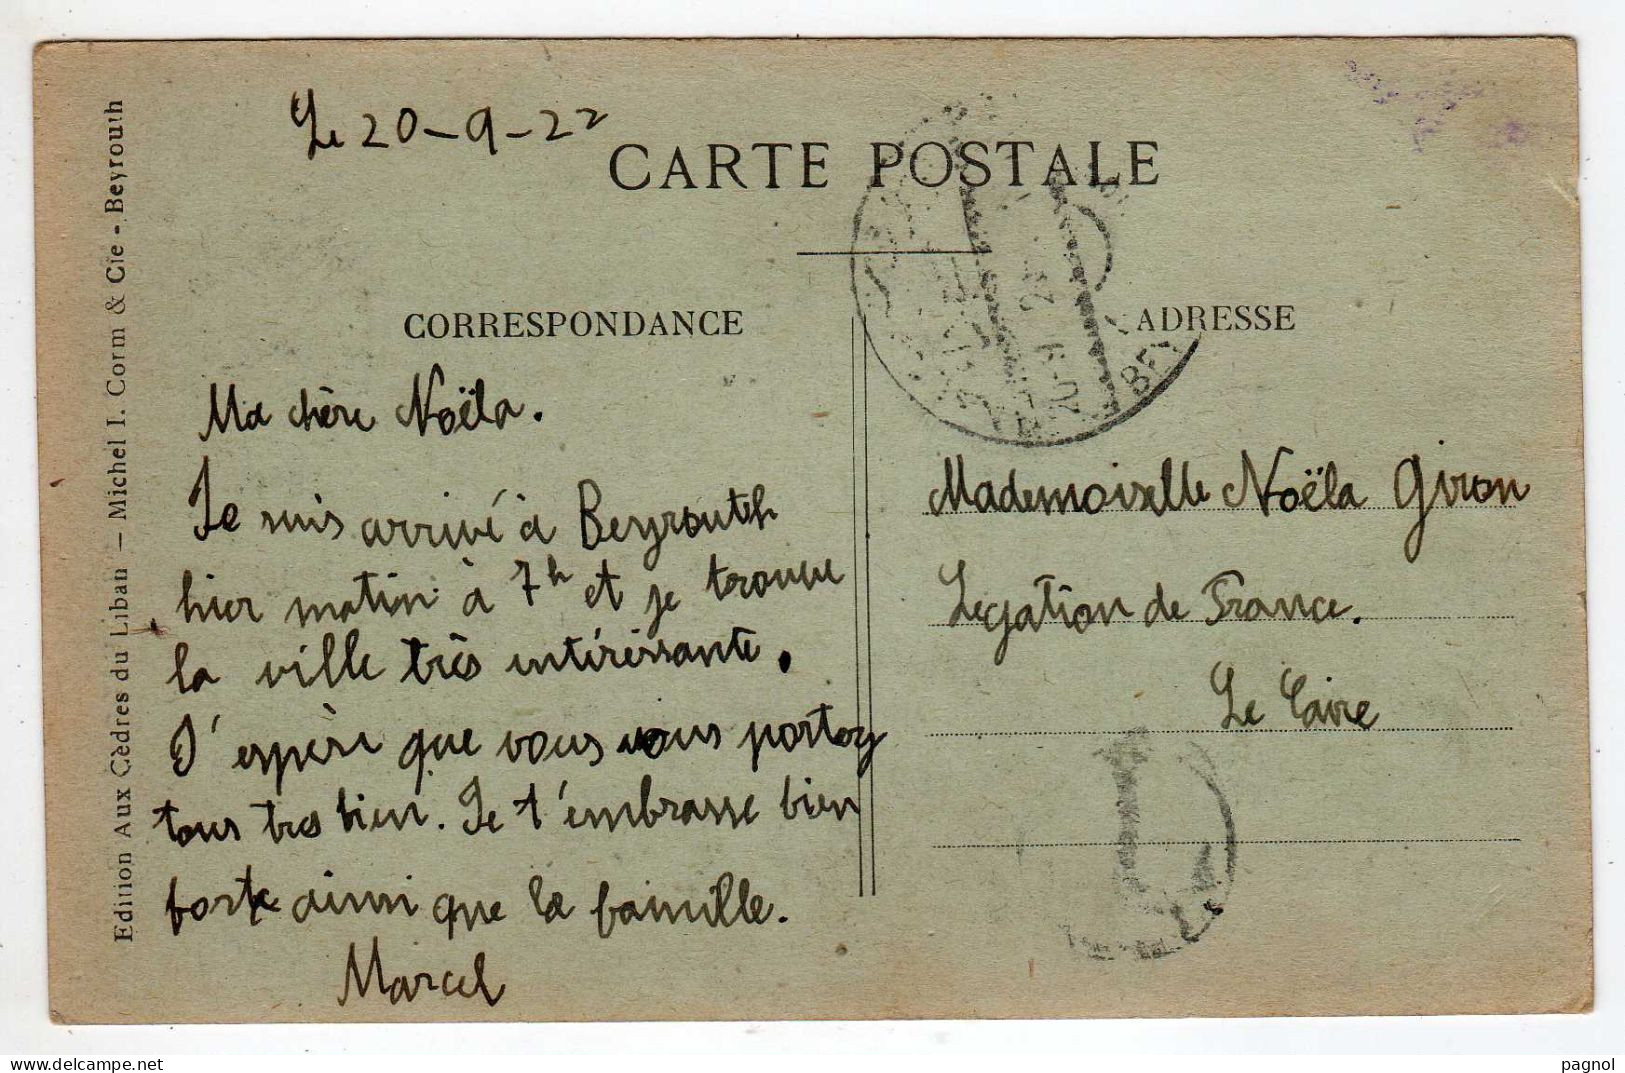 Le 20-9-22
CARTE POSTALE
CORRESPONDANCE
ADRESSE
Ma chère Noëla.
Je suis arrivé à Beyrouth
hier matin à 7h et je trouve
la ville très intéressante.
J'espère que vous vous portez
tous tres bien. Je t'embrasse bien
fort ainsi que la famille.
Marcel
Mademoiselle Noëla Giron
Legation de France.
Le Caire
Edition Aux Cèdres du Liban – Michel I. Corm & Cie - Beyrouth
20-9 2
BEY
pagnol